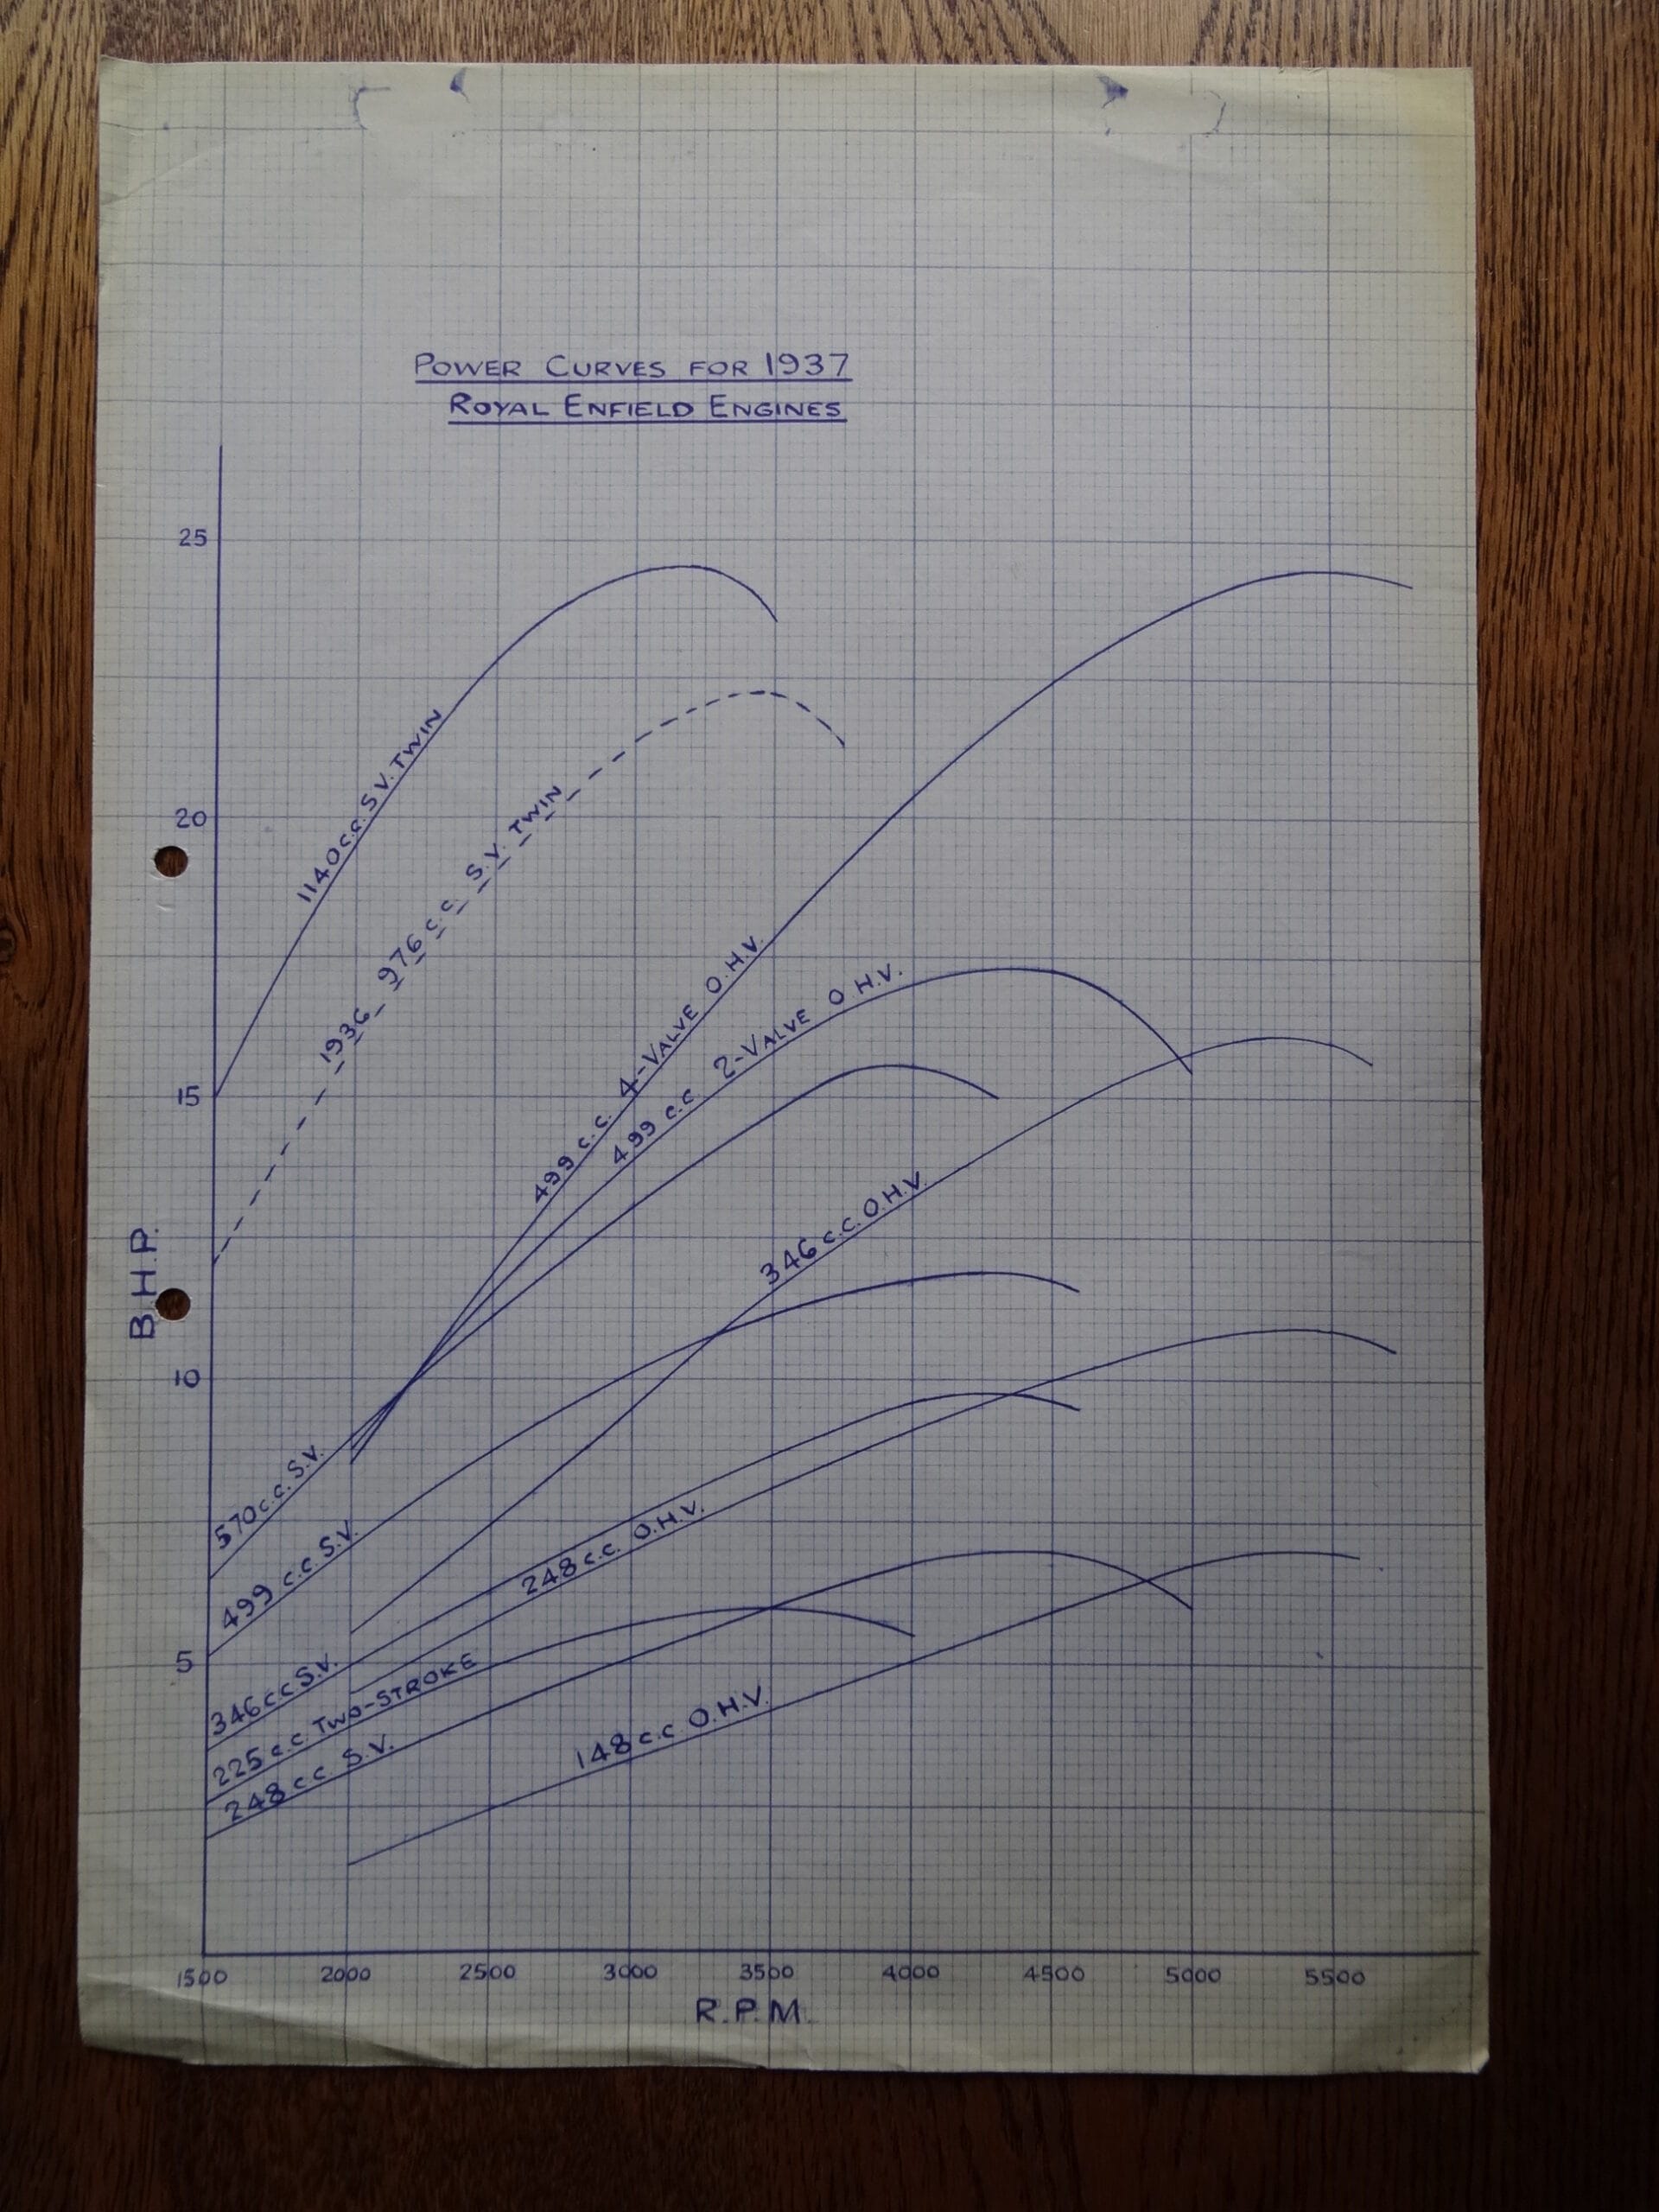 POWER CURVES FOR 1937
ROYAL ENFIELD ENGINES
25
20
15
10
5
B.H.P.
1140 c.c. S.V. TWIN
1936 976 c.c. S.V. TWIN
499 c.c. 4-VALVE O.H.V.
499 c.c 2-VALVE O H.V.
346 c.c. O.H.V.
570 c.c. S.V.
499 c.c. S.V.
346 cc S.V.
248 c.c. O.H.V.
225 c.c. TWO-STROKE
248 c.c. S.V.
148 c.c O.H.V.
1500 2000 2500 3000 3500 4000 4500 5000 5500
R.P.M.